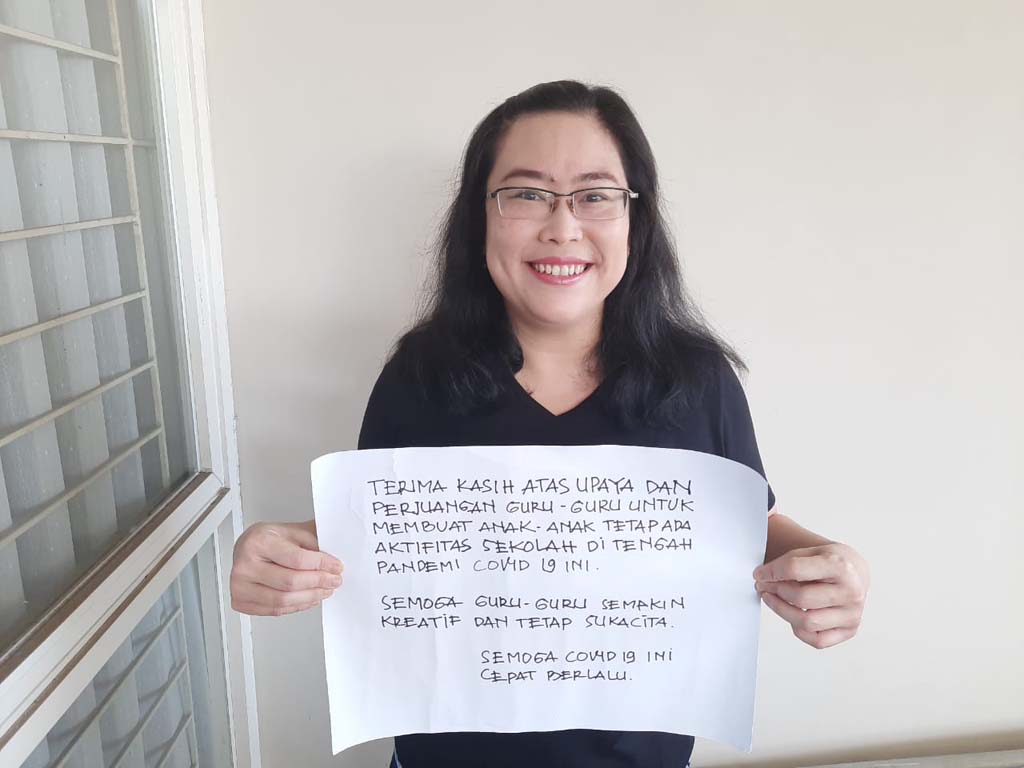 TERIMA KASIH ATAS UPAYA DAN
PERJUANGAN GURU-GURU UNTUK
MEMBUAT ANAK-ANAK TETAP ADA
AKTIFITAS SEKOLAH DI TENGAH
PANDEMI COVID 19 INI.
SEMOGA GURU-GURU SEMAKIN
KREATIF DAN TETAP SUKACITA.
SEMOGA COVID 19 INI
CEPAT BERLALU.